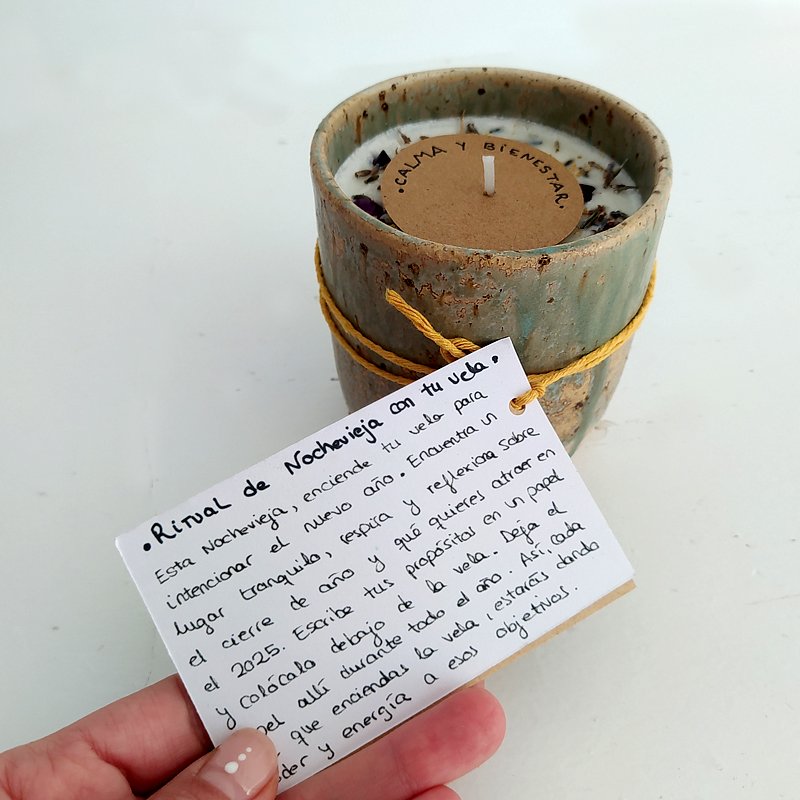 • CALMA Y BIENESTAR •
• RITUAL de Nochevieja con tu vela •
Esta Nochevieja, enciende tu vela para
intencionar el nuevo año. Encuentra un
lugar tranquilo, respira y reflexiona sobre
el cierre de año y qué quieres atraer en
el 2025. Escribe tus propósitos en un papel
y colócalo debajo de la vela. Deja el
allí durante todo el año. Así, cada
que enciendas la vela, estarás dando
y energía a esos objetivos.